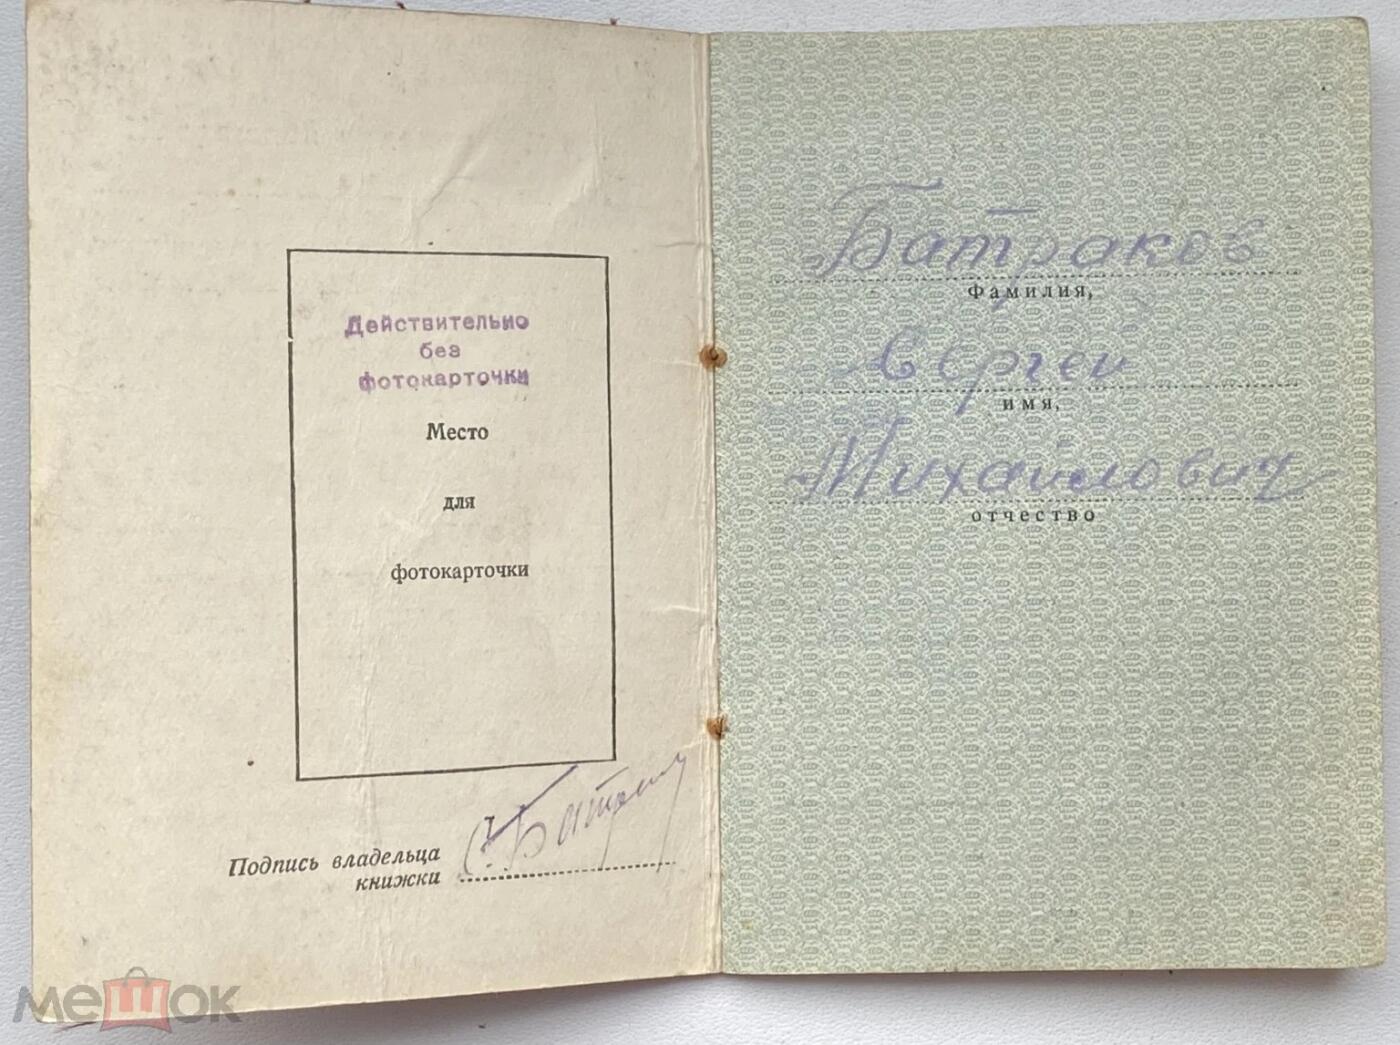 Действительно
без
фотокарточки
Место
для
фотокарточки
Подпись владельца
книжки
Батраков
Фамилия,
Сергей
имя,
Михайлович
отчество
мешок